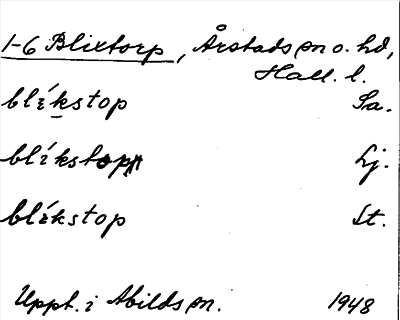 1-6 Blixtorp, Årstads sn o. hd,
Hall. l.
blı́kstop Sa.
blı́kstop Lj.
blı́kstop St.
Uppt. i Abilds sn. 1948